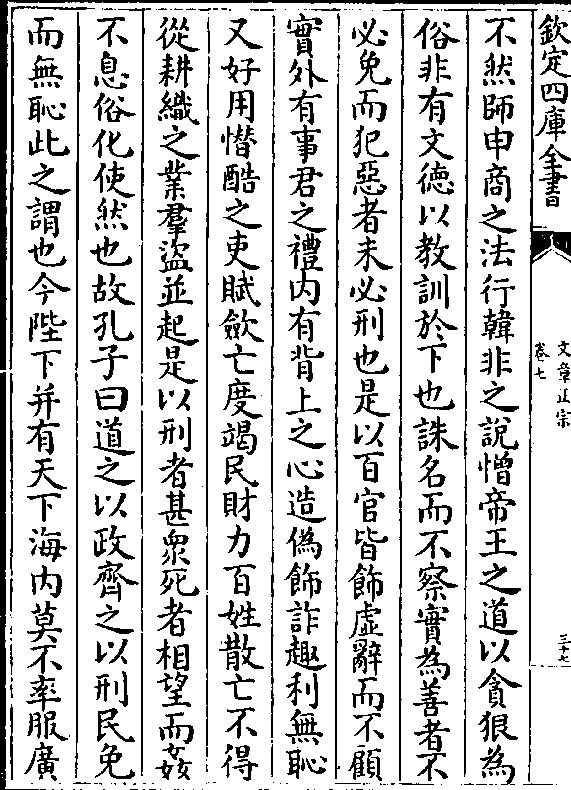 欽定四庫全書
文章正宗
卷七
三十七
不然師申商之法行韓非之說憎帝王之道以貪狠為
俗非有文徳以教訓於下也誅名而不察實為善者不
必免而犯惡者未必刑也是以百官皆飾虛辭而不顧
實外有事君之禮内有背上之心造偽飾詐趣利無恥
又好用憯酷之吏賦斂亡度竭民財力百姓散亡不得
從耕織之業羣盜並起是以刑者甚衆死者相望而姦
不息俗化使然也故孔子曰道之以政齊之以刑民免
而無恥此之謂也今陛下并有天下海内莫不率服廣